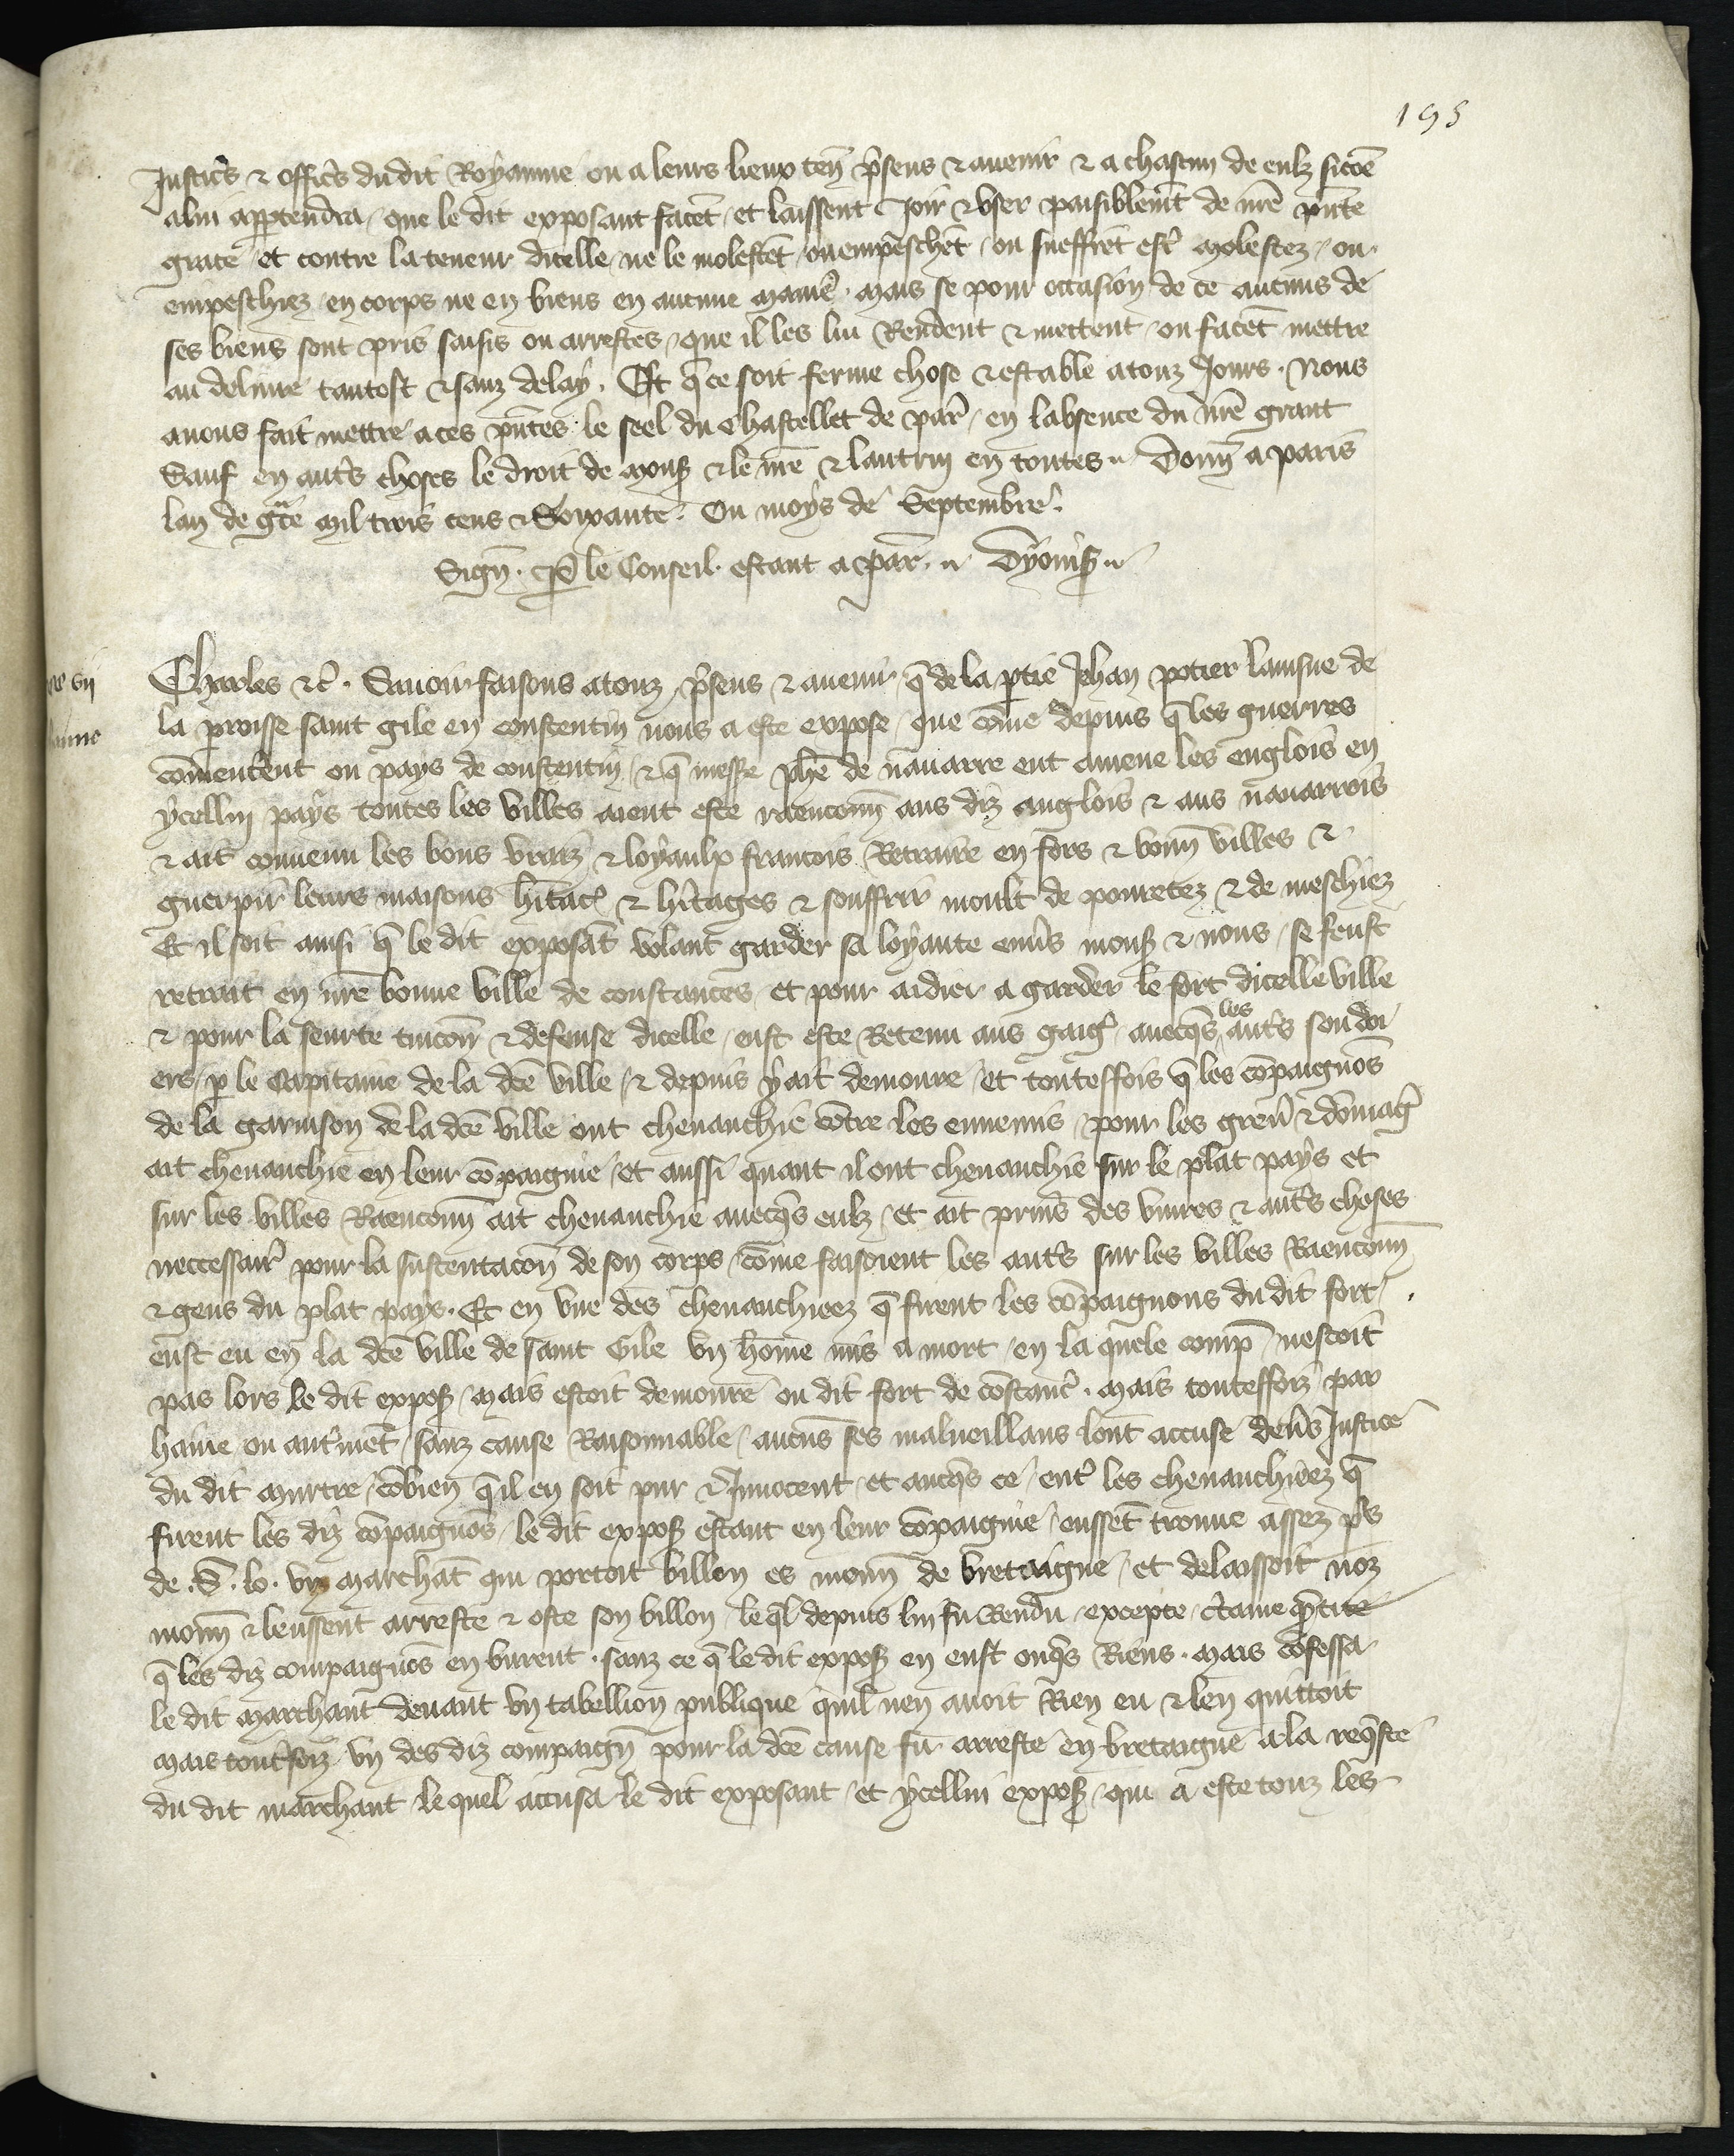 195
Justic's & offic's du dit Royaume ou a leurs lieux ten̄ p̄sens & auenir & a chascun de eulz sicōe
alui appartendra / que le dit exposant facēt / et laissent Joir & vser paisiblemēt de nr̄e pn̄te
grace / et contre la teneur dicelle / ne le molestēt / ou empeschēt / ou sueffrēt est' molestez / ou
empeschiez / en corps ne en biens en aucune manie' . mais se pour occasion de ce aucuns de
ses biens sont pris saisis ou arrestes / que il les lui Rendent & mettent / ou facēt mettre
au deliure tantost & sanz delay . Et q̄ ce soit ferme chose & estable atouz Jours . Nous
auons fait mettre a ces pn̄tes le seel du chastellet de par' / en labsence du nr̄e grant
Sauf en aut's choses le droit de mons' & le nr̄e & lautruy en toutes . Donn̄ a paris
lan de gr̄ce mil trois cens & Soixante . Ou moys de Septembre .
Sign̄ . p̱ le Conseil . estant a par' . Dyonis' .
Charles &c' . Sauoir faisons atouz p̄sens & auenir q̄ de la p̱tie Jehan potier lainsne de
la p̱roisse saint gile en constentin nous a este expose / que cōme depuis q̄ les guerres
cōmencēnt ou pays de constentin / & q̄ mess'e phē de nauarre eut amene les englois en
ycellui pays toutes les villes aient este raenconn̄ aus diz anglois & aus nauarrois
& ait conuenu les bons vraiz & loyaulx francois Retraire en fors & bonn̄ villes &
guerpir leurs maisons h̄itac' & h'itages & souffrir moult de pouretez & de meschiez
Et il soit ainsi q̄ le dit exposāt volant garder sa loyaute enu's mons' & nous / se feust
retrait en nr̄e bonne ville de constances / et pour aidier a garder le fort dicelle ville
& pour la seurte tuicōn & defense dicelle / eust este Retenu aus gaig' auecq's les aut's soudoi
ers / p̱ le Capitaine de la dc̄e ville / & depuis y ait demoure / et toutesfois q̄ les cōpaignōs
de la garnison de la dc̄e ville ont cheuauchie cōtre les ennemis / pour les greu' & dōmag'
ait cheuauchie en leur cōpaignie / et aussi quant il ont cheuauchie sur le plat pays et
sur les villes Raenconn̄ ait cheuauchie auecq's eulz / et ait prins des viures & aut's choses
neccessair' pour la sustentacōn de son corps / cōme faisoient les aut's sur les villes Raenconn̄
& gens du plat pays . Et en vne des cheuauchieez q̄ firent les cōpaignons du dit fort / .
eust eu en la dc̄e ville de saint Gile vn hōme mis a mort / en la quele comp̄ nestoit
pas lors le dit expos' / mais estoit demoure ou dit fort de cōstanc' . mais toutesfoiz par
haine ou aut'mēt / sanz cause Raisonnable / aucūs ses malueillans lont accuse deu's Justice
du dit murtre / cōbien q̄ il en soit pur & Innocent / et auecq's ce / ent' les cheuauchieez q̄
firent les diz cōpaignōs / le dit expos' estant en leur cōpaignie / eussēt trouue assez p's
de . S . lo . vn marchāt qui portoit billon es monn̄ de bretaigne / et delaissoit noz
monn̄ & leussent arreste & oste son billon / leq̄l depuis lui fu Rendu / excepte c'taine p̱tite
q̄ les diz compaignōs en burent . sanz ce q̄ le dit expos' en eust onq's Riens . mais cōfessa
le dit marchant deuant vn tabellion publique quil nen auoit Rien eu & len quittoit
mais tout'foiz vn des diz compaign̄ pour la dc̄e cause fu arreste en bretaigne a la req̄ste
du dit marchant lequel accusa le dit exposant / et ycellui expos' / qui a este touz les